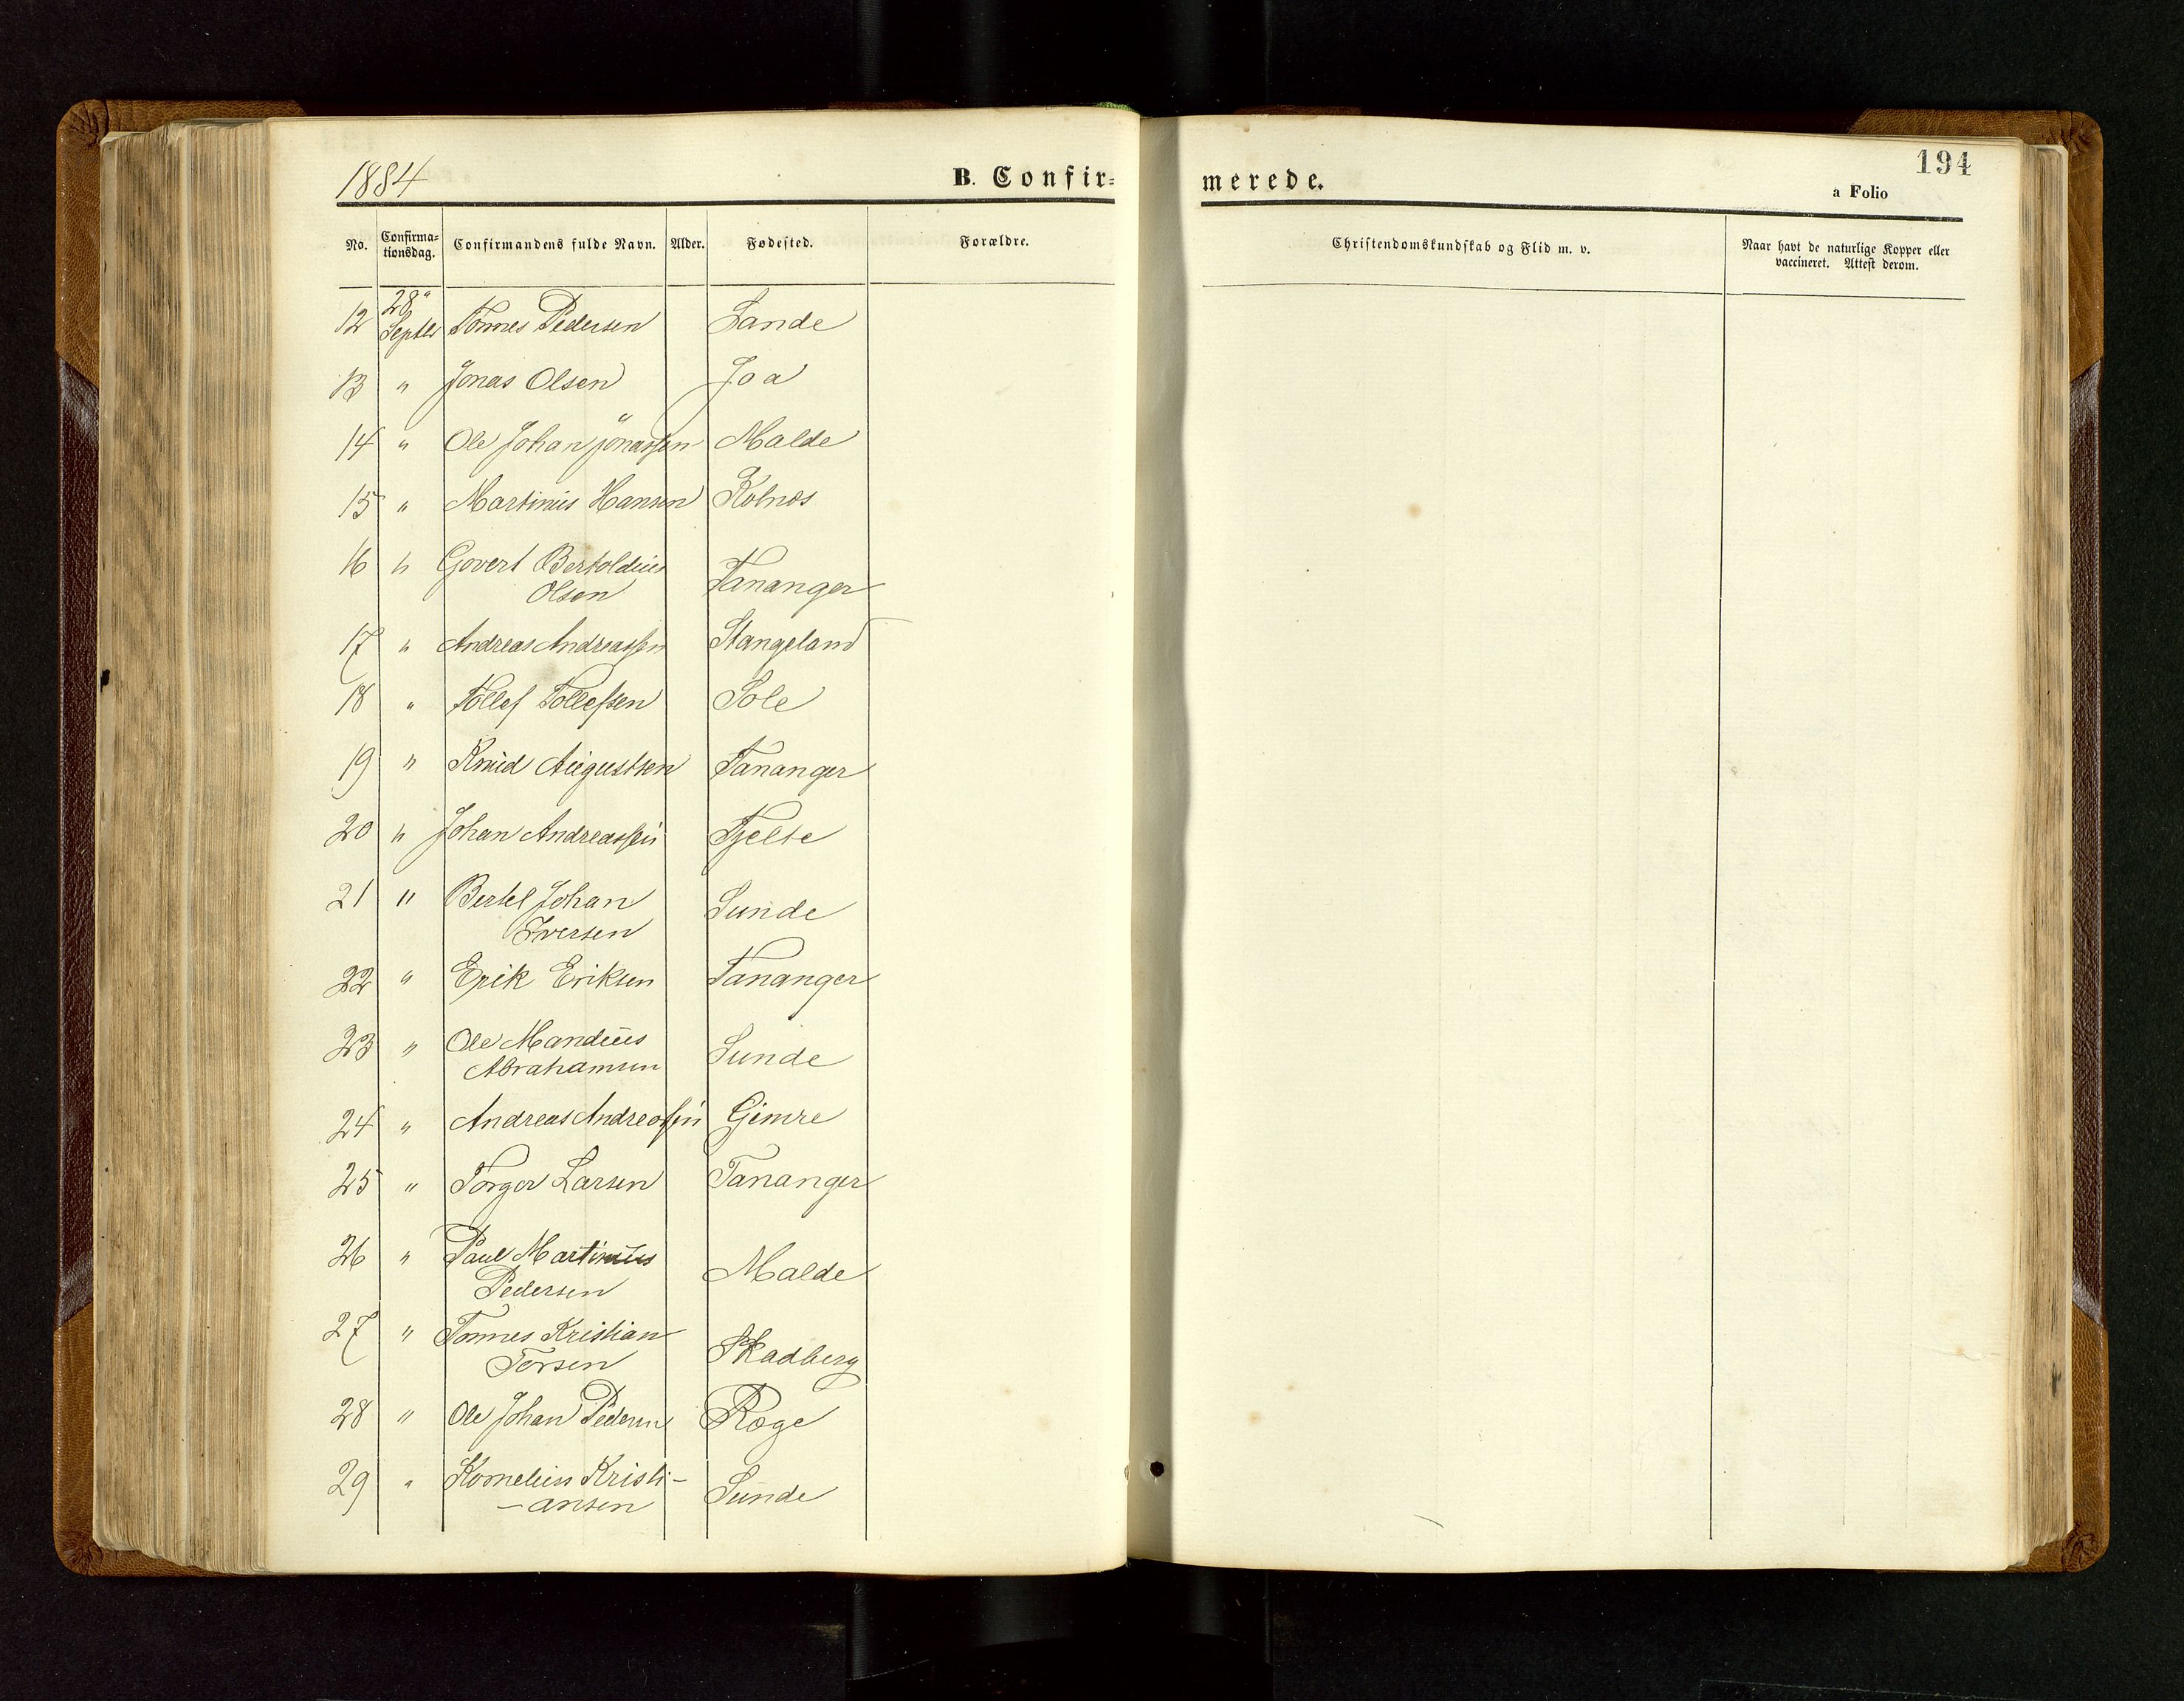 1884
B. Confir=
merede.
194
a Folio
No.
Confirma=
tionsdag.
Confirmandens fulde Navn.
Alder.
Fødested.
Forældre.
Christendomskundskab og Flid m. v.
Naar havt de naturlige Kopper eller
vaccineret. Attest derom.
28"
12 Septbr Tönnes Pedersen Sande
13 " Jonas Olsen Joa
14 " Ole Johan Jonassen Malde
15 " Martinus Hansen Kolnes
16 " Govert Bertoldius
Olsen Tananger
17 " Andreas Andreassen Stangeland
18 " Tollef Tollefsen Sole
19 " Knud Augustsen Tananger
20 " Johan Andreassen Tjelte
21 " Bertel Johan
Iversen Sunde
22 " Erik Eriksen Tananger
23 " Ole Mandius
Abrahamsen Sunde
24 " Andreas Andreassen Gimre
25 " Torger Larsen Tananger
26 " Paul Martinius
Pedersen Malde
27 " Tönnes Kristian
Torsen Skadberg
28 " Ole Johan Pedersen Røge
29 " Kornelius Kristi-
-ansen Sunde